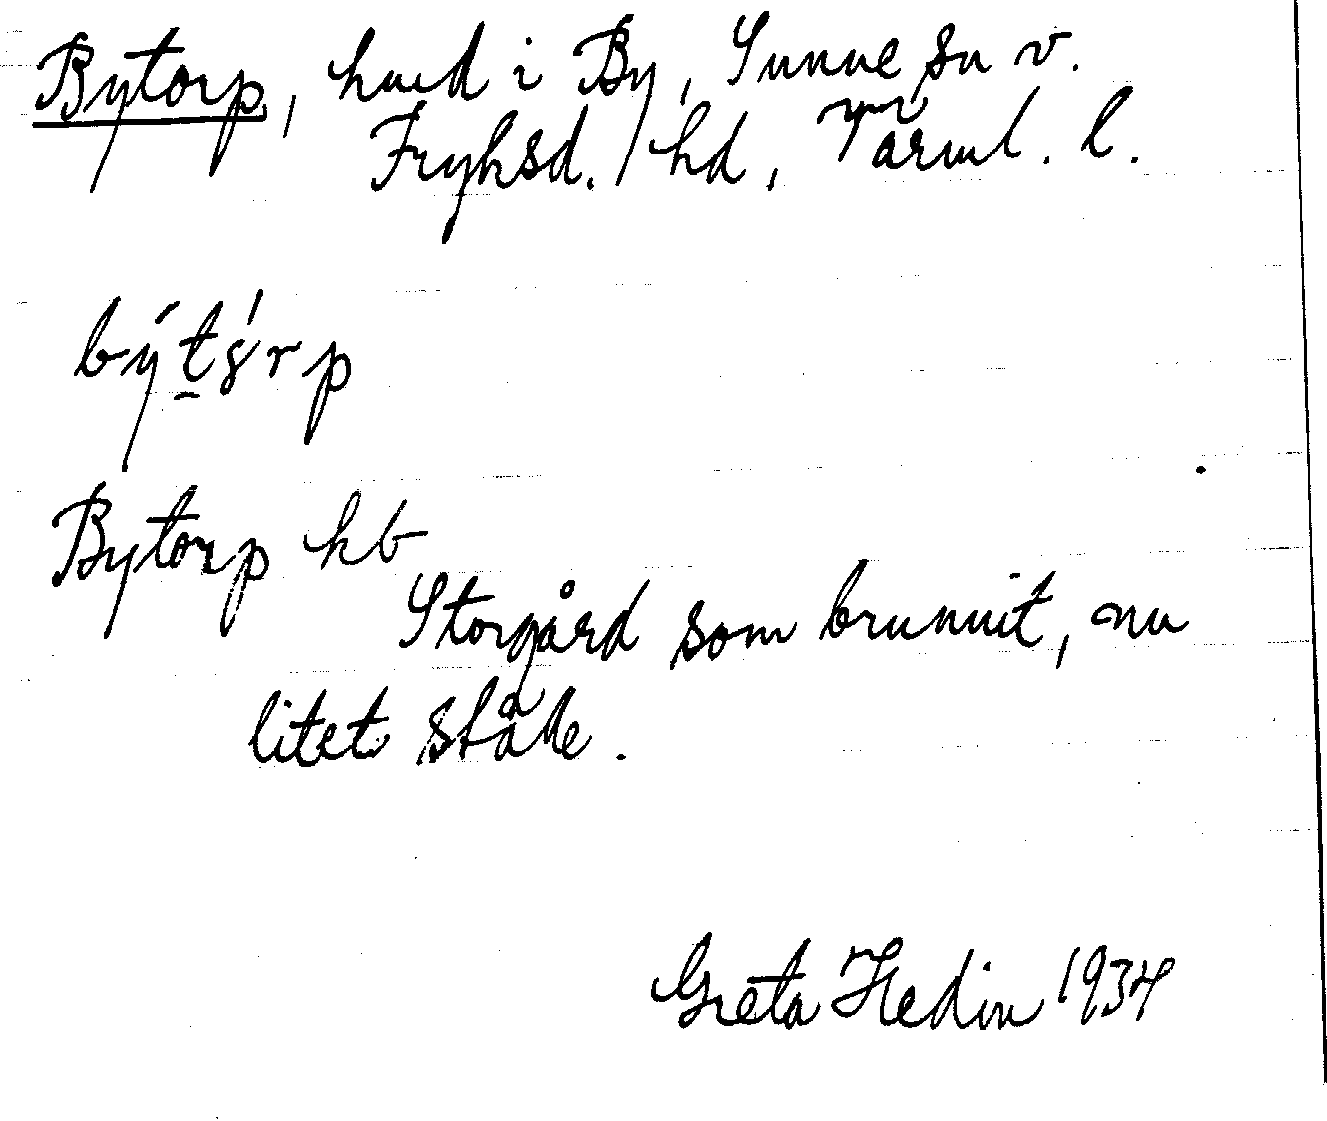 Bytorp, hmd i By, Sunne sn v.
Fryksd. hd, Värml. l.
býtó́rp
Bytorp kb
Storgård som brunnit, nu
litet ställe.
Greta Hedin 1934